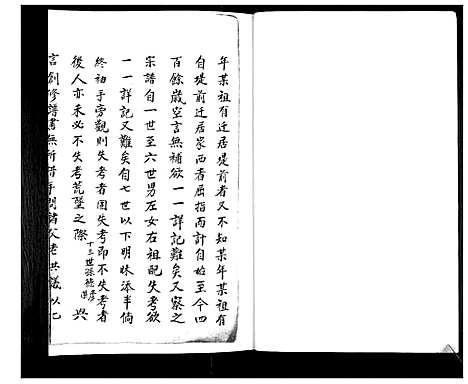 年某祖有迁居堤前者又不知某年某祖有
自堤前迁居家西者屈指而計自始至今四
百餘歲空言無補欲一一詳記難矣又察之
宗譜自一世至六世男左女右祖配失考欲
一一詳記又難矣自七世以下明昧添半倘
終初手旁觀則失考者固失考即不失考者
後人亦未必不失考荒墜之際十三世孫德 與
言創修譜書無所措手問諸父老共議以